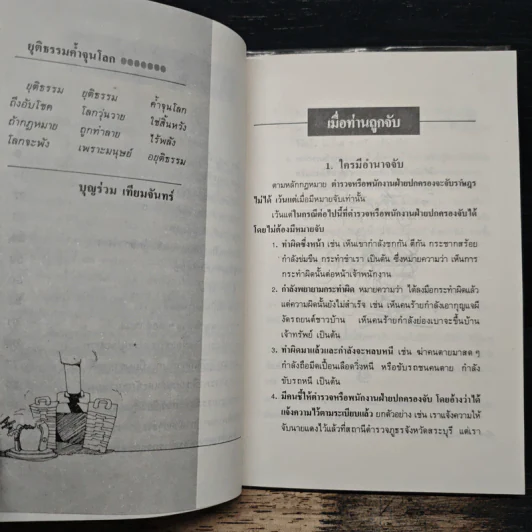 ยุติธรรมค้ำจุนโลก
ยุติธรรม ยุติธรรม ค้ำจุนโลก
ถึงอับโชค โลกวุ่นวาย ใช่สิ้นหวัง
ถ้ากฎหมาย ถูกทำลาย ไร้พลัง
โลกจะพัง เพราะมนุษย์ อยุติธรรม
บุญร่วม เทียมจันทร์
เมื่อท่านถูกจับ
1. ใครมีอำนาจจับ
ตามหลักกฎหมาย ตำรวจหรือพนักงานฝ่ายปกครองจะจับราษฎร
ไม่ได้ เว้นแต่เมื่อมีหมายจับเท่านั้น
เว้นแต่ในกรณีต่อไปนี้ที่ตำรวจหรือพนักงานฝ่ายปกครองจับได้
โดยไม่ต้องมีหมายจับ
1. ทำผิดซึ่งหน้า เช่น เห็นเขากำลังชกกัน ตีกัน กระชากสร้อย
กำลังข่มขืน กระทำชำเรา เป็นต้น ซึ่งหมายความว่า เห็นการ
กระทำผิดนั้นต่อหน้าเจ้าพนักงาน
2. กำลังพยายามกระทำผิด หมายความว่า ได้ลงมือกระทำผิดแล้ว
แต่ความผิดนั้นยังไม่สำเร็จ เช่น เห็นคนร้ายกำลังเอากุญแจผี
งัดรถยนต์ชาวบ้าน เห็นคนร้ายกำลังย่องเบาจะขึ้นบ้าน
เจ้าทรัพย์ เป็นต้น
3. ทำผิดมาแล้วและกำลังจะหลบหนี เช่น ฆ่าคนตายมาสด ๆ
กำลังถือมีดเปื้อนเลือดวิ่งหนี หรือขับรถชนคนตาย กำลัง
ขับรถหนี เป็นต้น
4. มีคนชี้ให้ตำรวจหรือพนักงานฝ่ายปกครองจับ โดยอ้างว่าได้
แจ้งความไว้ตามระเบียบแล้ว ยกตัวอย่าง เช่น เราแจ้งความให้
จับนายแดงไว้แล้วที่สถานีตำรวจภูธรจังหวัดสระบุรี แต่เรา